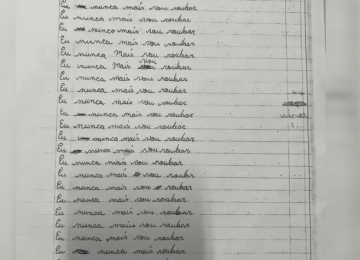 Eu nunca mais vou roubar
Eu nunca mais vou roubar
Eu nunca mais vou roubar
Eu nunca mais vou roubar
Eu nunca mais vou roubar
Eu nunca mais vou roubar
Eu nunca mais vou roubar
Eu nunca mais vou roubar
Eu nunca mais vou roubar
Eu nunca mais vou roubar
Eu nunca mais vou roubar
Eu nunca mais vou roubar
Eu nunca mais vou roubar
Eu nunca mais vou roubar
Eu nunca mais vou roubar
Eu nunca mais vou roubar
Eu nunca mais vou roubar
Eu nunca mais vou roubar
Eu nunca mais vou roubar
Eu nunca mais vou roubar
Eu nunca mais vou roubar